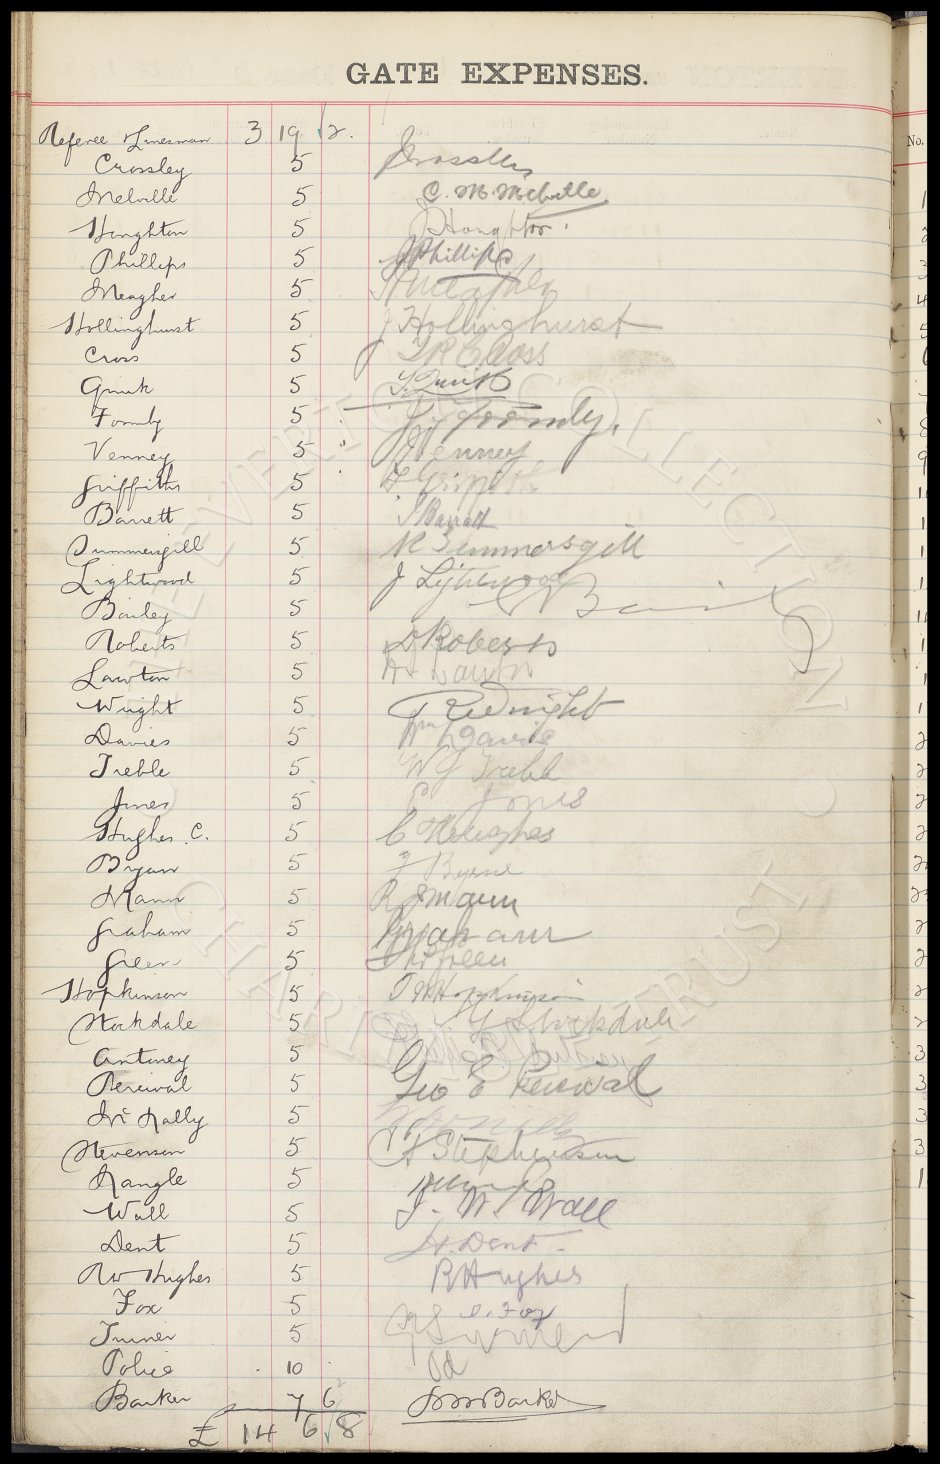 GATE EXPENSES.
No.
Referee & Linesman 3 19 2.
Crossley 5
Melville 5 C. M. Melville
Houghton 5 J Houghton
Phillips 5 J Phillips
Meagher 5
Hollinghurst 5 J Hollinghurst
Cross 5 T R Cross
Quirk 5 Quirk
Formby 5 Formby.
Venney 5 Venney
Griffiths 5
Barrett 5 J Barrett
Summersgill 5 Summersgill
Lightwood 5 J Lightwood
Bailey 5
Roberts 5 Roberts
Lawton 5
Wright 5 Wright
Davies 5
Treble 5 W J Treble
Jones 5 Jones
Hughes. C. 5 C Hughes
Bryan 5 Byrne
Mann 5 R J Mann
Graham 5 Graham
Green 5 Green
Hopkinson 5 Hopkinson
Stockdale 5 Stockdale
Antiney 5
Percival 5 Geo E Percival
McNally 5
Stevenson 5 Stephenson
Nangle 5
Wall 5 J. W. Wall
Dent 5 H. Dent.
RW Hughes 5 R H Hughes
Fox 5 Fox
Turner 5
Police 10 Pd
Barker 7 6 Barker
£ 14 6 8
THE EVERTON COLLECTION
CHARITABLE TRUST